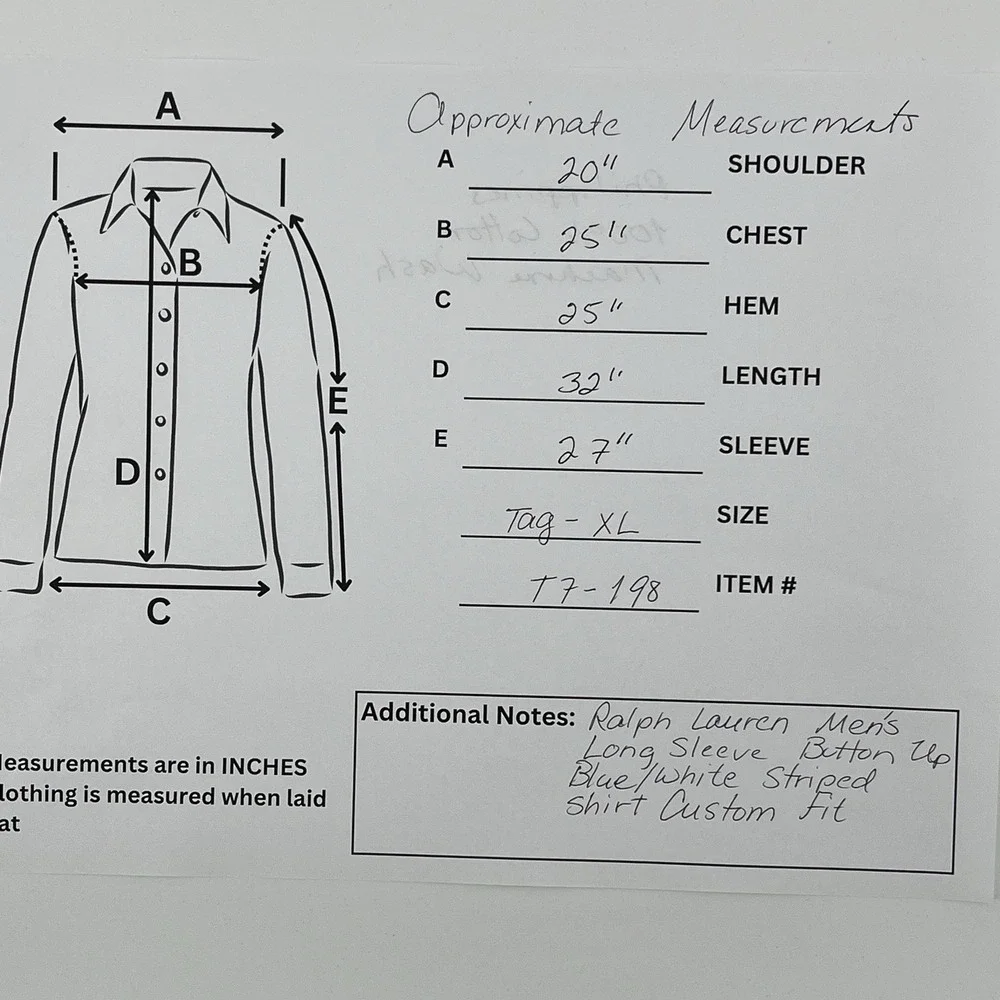 A
B
D
E
C
Approximate Measurements
A 20" SHOULDER
B 25" CHEST
C 25" HEM
D 32" LENGTH
E 27" SLEEVE
Tag - XL SIZE
T7-198 ITEM #
easurements are in INCHES
lothing is measured when laid
at
Additional Notes: Ralph Lauren Men's
Long Sleeve Button Up
Blue/White Striped
Shirt Custom Fit